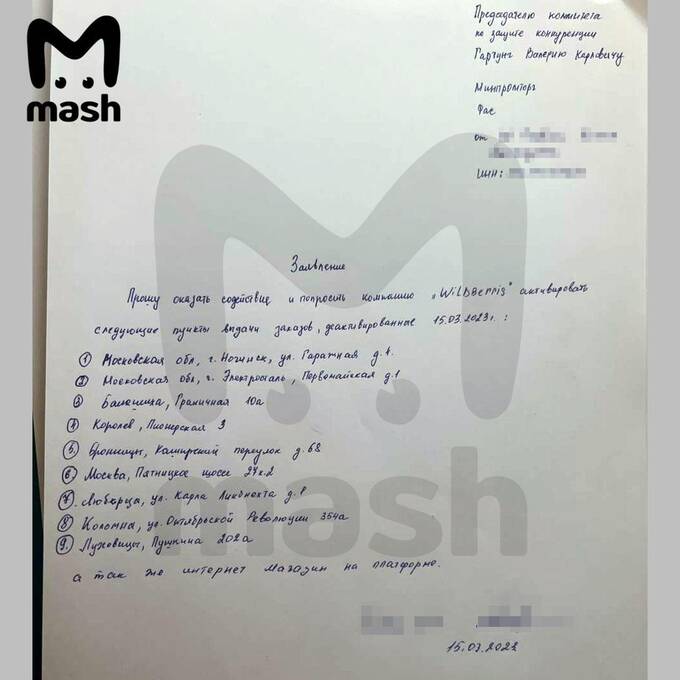 mash
Председателю комитета
по защите конкуренции
Гартунг Валерию Карловичу
Минпромторг
Фас
от
ИНН:
Заявление
Прошу оказать содействие и попросить компанию „WildBerris" активировать
следующие пункты выдачи заказов, деактивированные 15.03.2023г.:
① Московская обл, г. Ногинск, ул. Гаражная д.1.
② Московская обл, г. Электросталь, Первомайская д.1
③ Балашиха, Граничная 10а
④ Королев, Пионерская 3
⑤. Бронницы, Каширский переулок д.68
⑥. Москва, Пятницкое шоссе 27к2
⑦. Люберцы, ул. Карла Либкнехта д.
⑧ Коломна, ул. Октябрьской Революции 354а
⑨. Луховицы, Пушкина 202а
а так же интернет магазин на платформе.
mash
15.03.2023